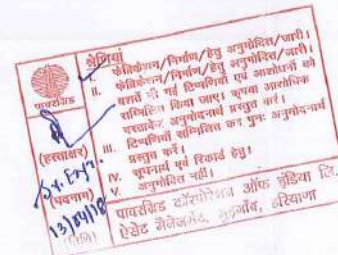 श्रेणियां
I. फेब्रिकेशन/निर्माण/हेतु अनुमोदित/जारी।
II. फेब्रिकेशन/निर्माण/हेतु अनुमोदित/जारी।
बशर्ते की गई टिप्पणियों एवं आशोधनों को
सम्मिलित किया जाए। कृपया आशोधित
दस्तावेज अनुमोदनार्थ प्रस्तुत करें।
III. टिप्पणियाँ सम्मिलित कर पुनः अनुमोदनार्थ
प्रस्तुत करें।
IV. सूचनार्थ एवं रिकार्ड हेतु।
V. अनुमोदित नहीं।
पावरग्रिड
(हस्ताक्षर)
(पदनाम)
13/04/18
(तिथि)
पावरग्रिड कॉरपोरेशन ऑफ इंडिया लि.
ऐसेट मैनेजमेंट, गुड़गाँव, हरियाणा